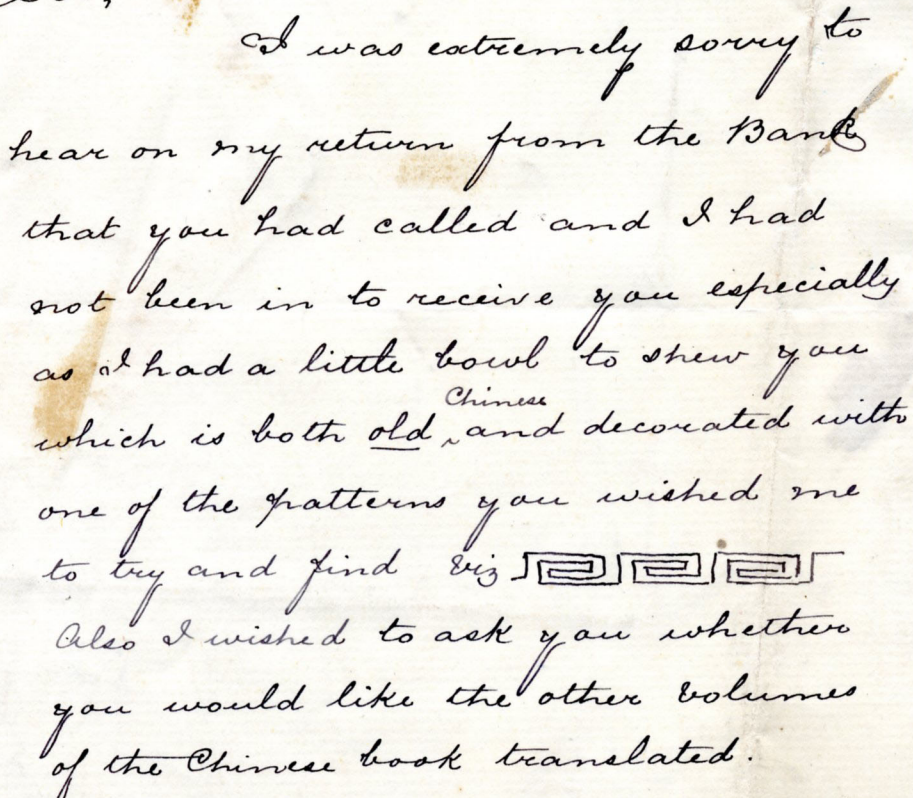 I was extremely sorry to
hear on my return from the Bank
that you had called and I had
not been in to receive you especially
as I had a little bowl to shew you
Chinese
which is both old ‸ and decorated with
one of the patterns you wished me
to try and find viz
Also I wished to ask you whether
you would like the other volumes
of the Chinese book translated.